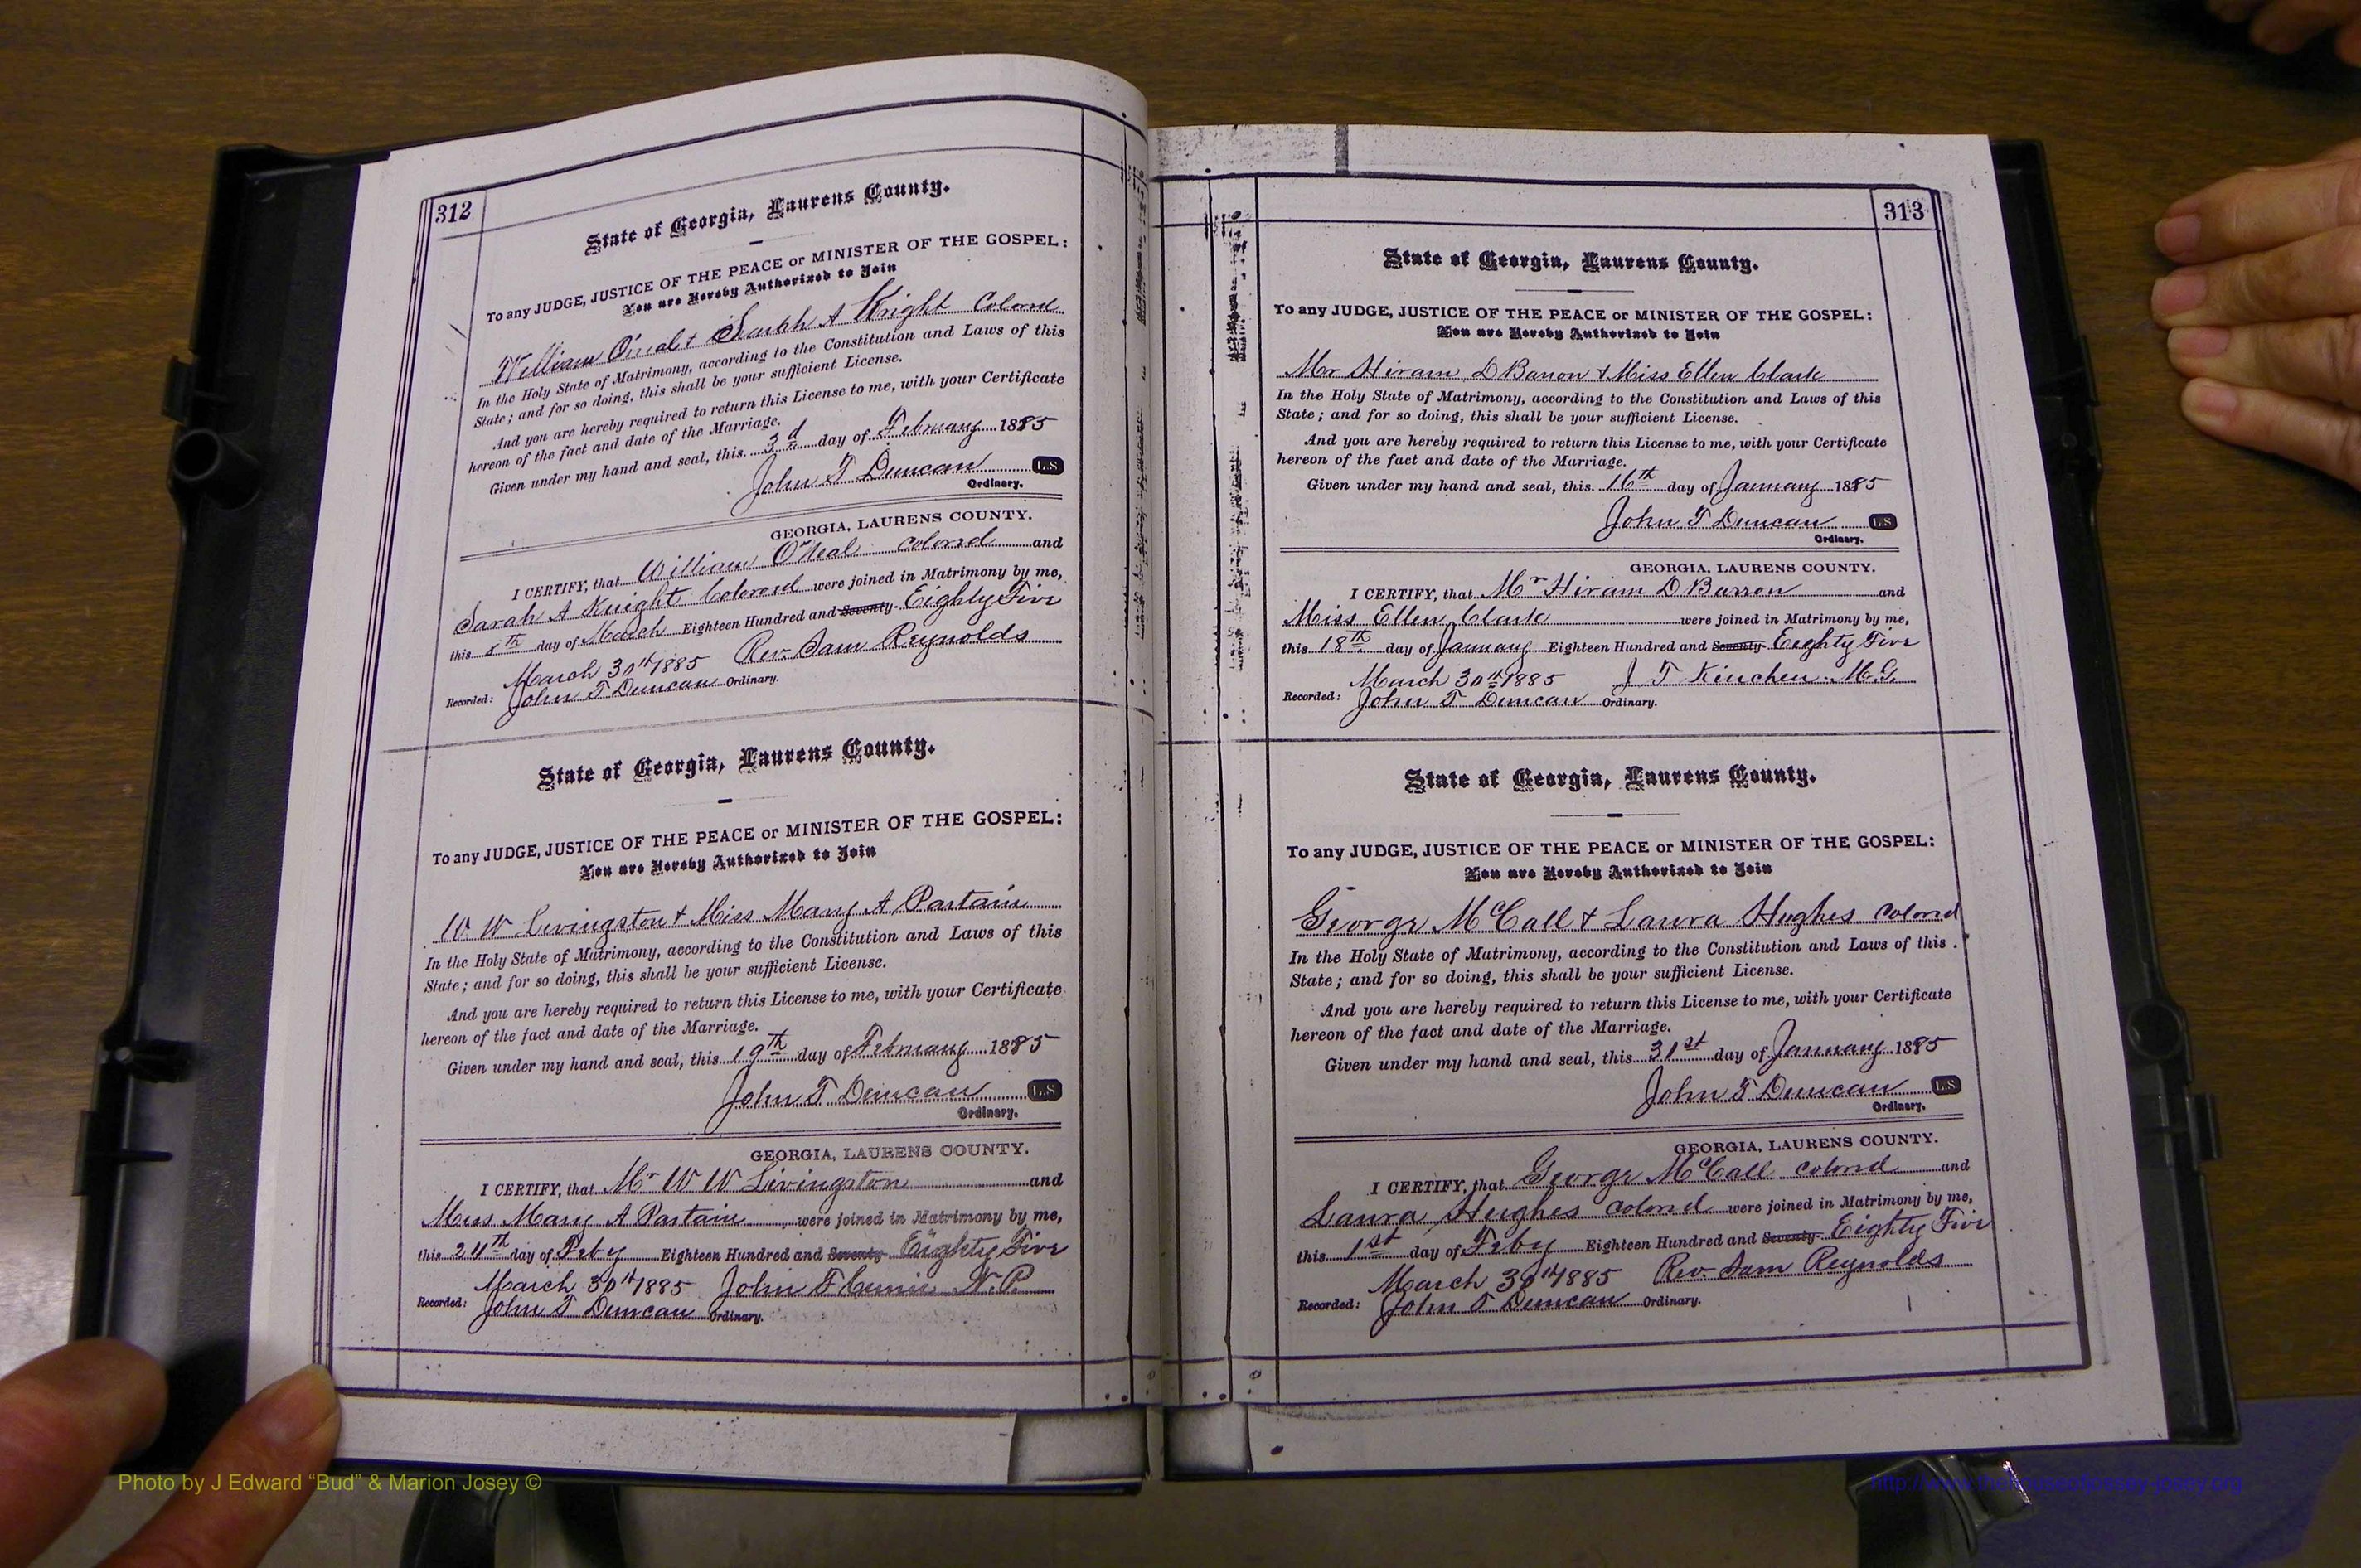 312
State of Georgia, Laurens County.
To any JUDGE, JUSTICE OF THE PEACE or MINISTER OF THE GOSPEL:
You are Hereby Authorized to Join
William O'neal & Sarah A Knight Colored
In the Holy State of Matrimony, according to the Constitution and Laws of this
State; and for so doing, this shall be your sufficient License.
And you are hereby required to return this License to me, with your Certificate
hereon of the fact and date of the Marriage.
Given under my hand and seal, this 3d day of February 1885
John T Duncan L.S
Ordinary.
GEORGIA, LAURENS COUNTY.
I CERTIFY, that William O'Neal colored and
Sarah A Knight Colored were joined in Matrimony by me,
this day of March Eighteen Hundred and Seventy Eighty Five
March 30th 1885 Rev. Sam Reynolds
Recorded: John T Duncan Ordinary.
State of Georgia, Laurens County.
To any JUDGE, JUSTICE OF THE PEACE or MINISTER OF THE GOSPEL:
You are Hereby Authorized to Join
W W Livingston & Miss Mary A Partain
In the Holy State of Matrimony, according to the Constitution and Laws of this
State; and for so doing, this shall be your sufficient License.
And you are hereby required to return this License to me, with your Certificate
hereon of the fact and date of the Marriage.
Given under my hand and seal, this 19th day of February 1885
John T Duncan L.S
Ordinary.
GEORGIA, LAURENS COUNTY.
I CERTIFY, that Mr W W Livingston and
Miss Mary A Partain were joined in Matrimony by me,
this 24th day of Feby Eighteen Hundred and Seventy Eighty Five
March 30th 1885 John F N.P.
Recorded: John T Duncan Ordinary.
313
State of Georgia, Laurens County.
To any JUDGE, JUSTICE OF THE PEACE or MINISTER OF THE GOSPEL:
You are Hereby Authorized to Join
Mr Hiram D Barron & Miss Ellen Clark
In the Holy State of Matrimony, according to the Constitution and Laws of this
State; and for so doing, this shall be your sufficient License.
And you are hereby required to return this License to me, with your Certificate
hereon of the fact and date of the Marriage.
Given under my hand and seal, this 16th day of January 1885
John T Duncan L.S
Ordinary.
GEORGIA, LAURENS COUNTY.
I CERTIFY, that Mr Hiram D Barron and
Miss Ellen Clark were joined in Matrimony by me,
this 18th day of January Eighteen Hundred and Seventy Eighty Five
March 30th 1885 J T Kinchen M.G.
Recorded: John T Duncan Ordinary.
State of Georgia, Laurens County.
To any JUDGE, JUSTICE OF THE PEACE or MINISTER OF THE GOSPEL:
You are Hereby Authorized to Join
George McCall & Laura Hughes colored
In the Holy State of Matrimony, according to the Constitution and Laws of this
State; and for so doing, this shall be your sufficient License.
And you are hereby required to return this License to me, with your Certificate
hereon of the fact and date of the Marriage.
Given under my hand and seal, this 31st day of January 1885
John T Duncan L.S
Ordinary.
GEORGIA, LAURENS COUNTY.
I CERTIFY, that George McCall colored and
Laura Hughes colored were joined in Matrimony by me,
this 1st day of Feby Eighteen Hundred and Seventy Eighty Five
March 30th 1885 Rev. Sam Reynolds
Recorded: John T Duncan Ordinary.
Photo by J Edward “Bud” & Marion Josey ©